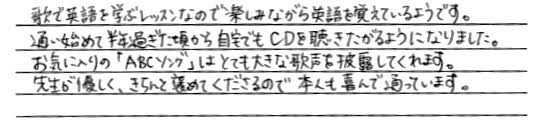 歌で英語を学ぶレッスンなので楽しみながら英語を覚えているようです。
通い始めて半年過ぎた頃から自宅でもCDを聴きたがるようになりました。
お気に入りの「ABCソング」はとても大きな歌声を披露してくれます。
先生が優しく、きちんと褒めてくださるので本人も喜んで通っています。